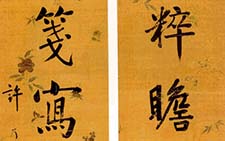 粹瞻
箋寫
許乃